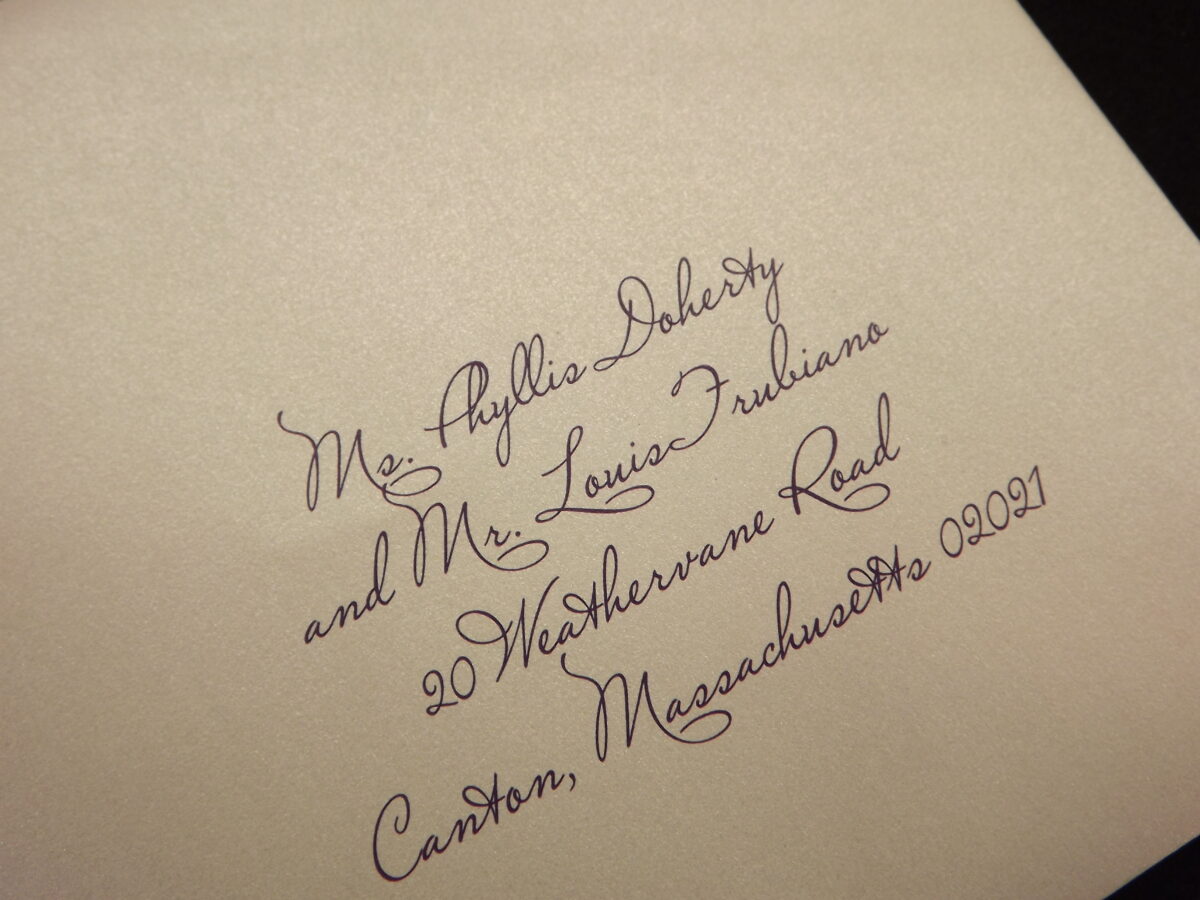 Ms. Phyllis Doherty
and Mr. Louis Frubiano
20 Weathervane Road
Canton, Massachusetts 02021